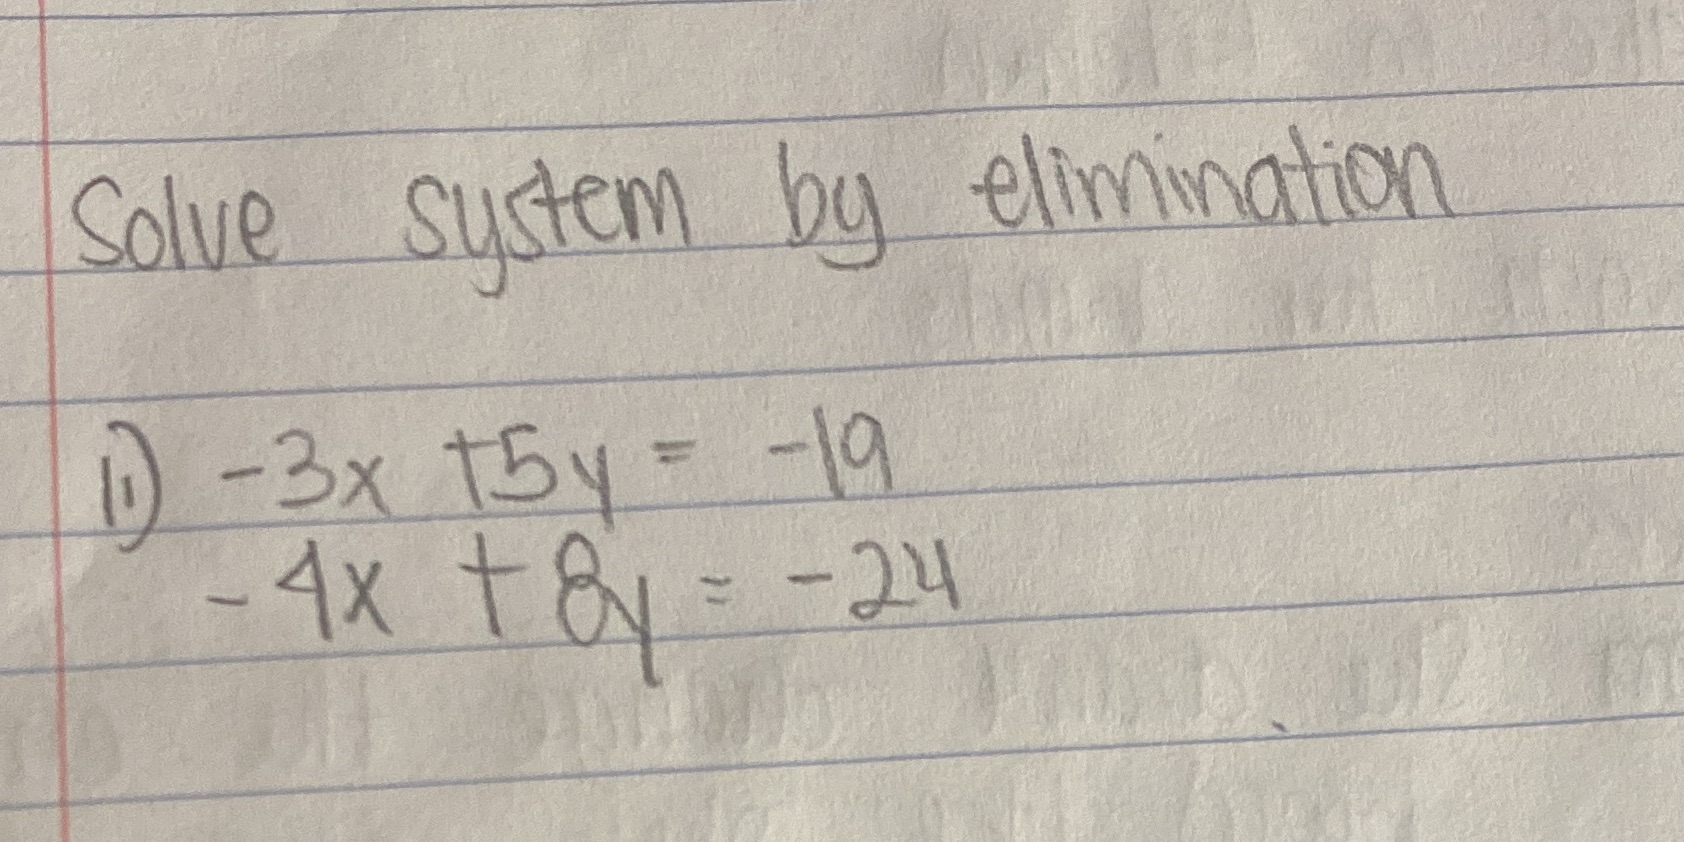 Solve system by elimination
11) -3x +5y = -19
-4x + 8y = -24